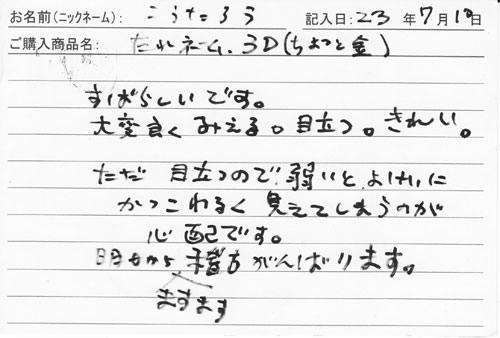 お名前(ニックネーム): こうたろう 記入日: 23 年 7 月 10 日
ご購入商品名: たれネーム. 3D(ちょっと金)
すばらしいです。
大変良くみえる。目立つ。きれい。
ただ 目立つので 弱いと よけいに
かっこわるく 見えてしまうのが
心配です。
がんばります。
ますます